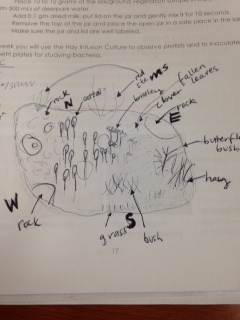 Place 10 to 12 grams of the
with 500 mls of deerpark water.
Add 0.1 gm dried milk, put lid on the jar and gently mix it for 10 seconds.
Remove the top of the jar and place the open jar in a safe place in the lab
Make sure the jar and lid are well labeled.
week you will use the Hay Infusion Culture to observe protists and to inoculate
with plates for studying bacteria.
rock
N
cattail
red
stems
fallen
leaves
clover
rock
E
butterfly
bush
hay
W
rock
S
grass
bush